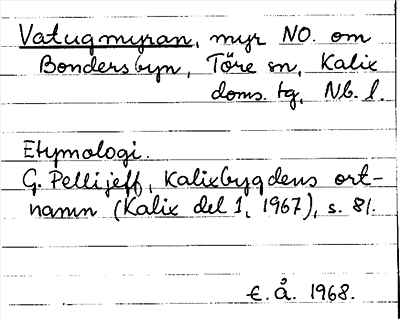 Vatugmyran, myr NO. om
Bondersbyn, Töre sn, Kalix
doms. tg, Nb. l.
Etymologi.
G. Pellijeff, Kalixbygdens ort-
namn (Kalix del 1, 1967), s. 81.
E. Å. 1968.